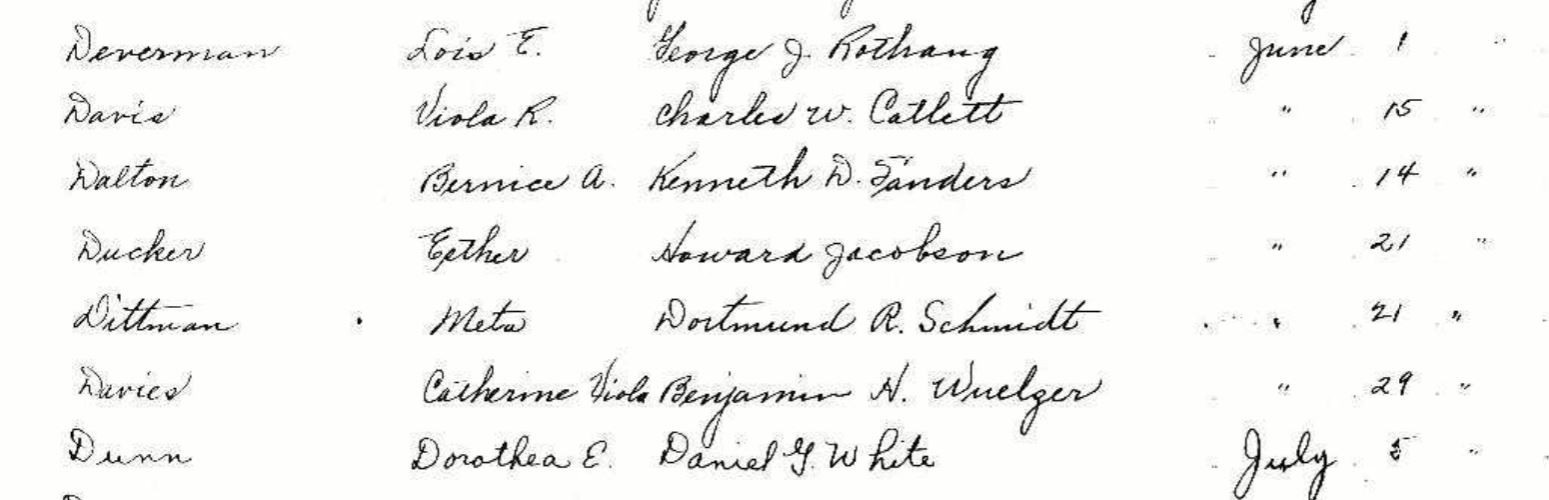 Deverman Lois E. George J. Rothang June 1 "
Davis Viola R. Charles W. Catlett " 15 "
Dalton Bernice A. Kenneth D. Sanders " 14 "
Ducker Esther Howard Jacobson " 21 "
Dittman Meta Dortmund R. Schmidt " 21 "
Davies Catherine Viola Benjamin H. Wuelzer " 29 "
Dunn Dorothea E. Daniel G. White July 5 "